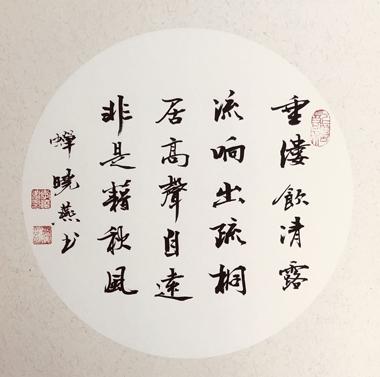 垂緌飲清露
流响出疏桐
居高聲自遠
非是藉秋風
蟬 曉燕书